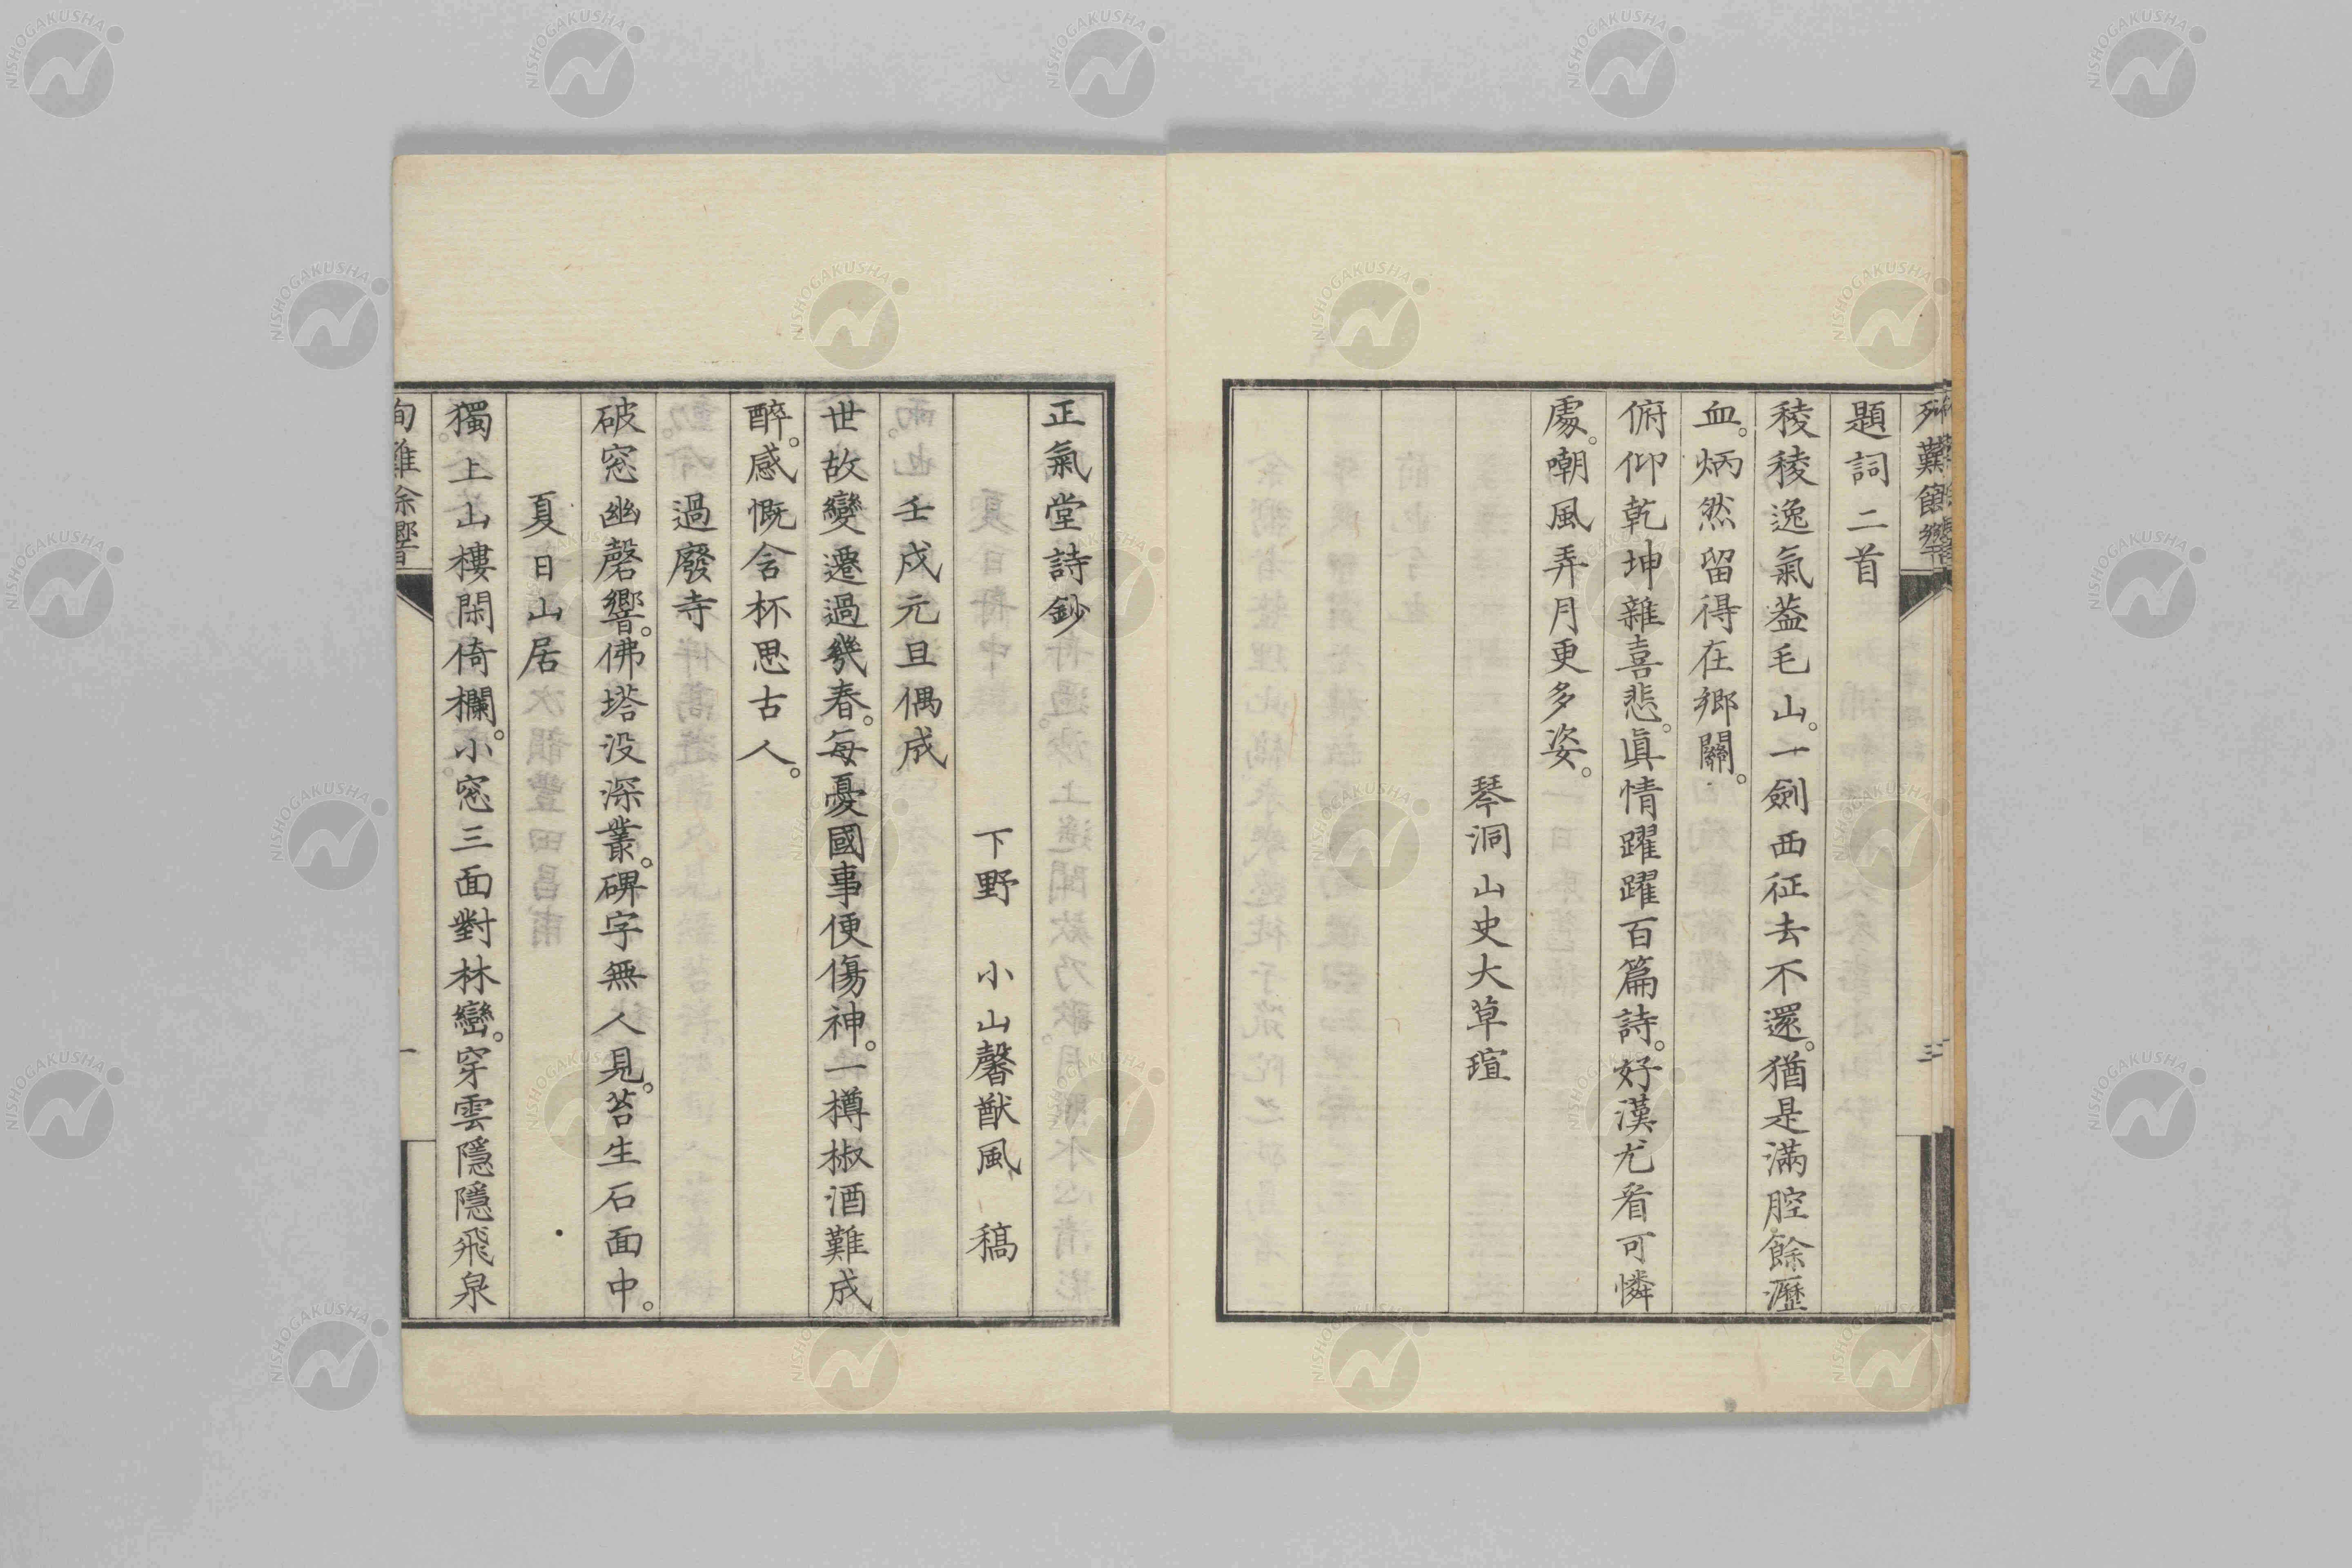 題詞二首
稜稜逸氣葢毛山。一劍西征去不還。猶是滿腔餘瀝
血。炳然留得在鄉關。
俯仰乾坤雜喜悲。眞情躍躍百篇詩。好漢尤看可憐
處。嘲風弄月更多姿。
琴洞山史大草瑄
正氣堂詩鈔
下野 小山馨猷風 稿
壬戌元旦偶成
世故變遷過幾春。每憂國事便傷神。一樽椒酒難成
醉。感慨含杯思古人。
過廢寺
破窓幽磬響。佛塔没深叢。碑字無人見。苔生石面中。
夏日山居
獨上山樓閑倚欄。小窓三面對林巒。穿雲隱隱飛泉
殉難餘響
一
殉難餘響
三
NISHOGAKUSHA